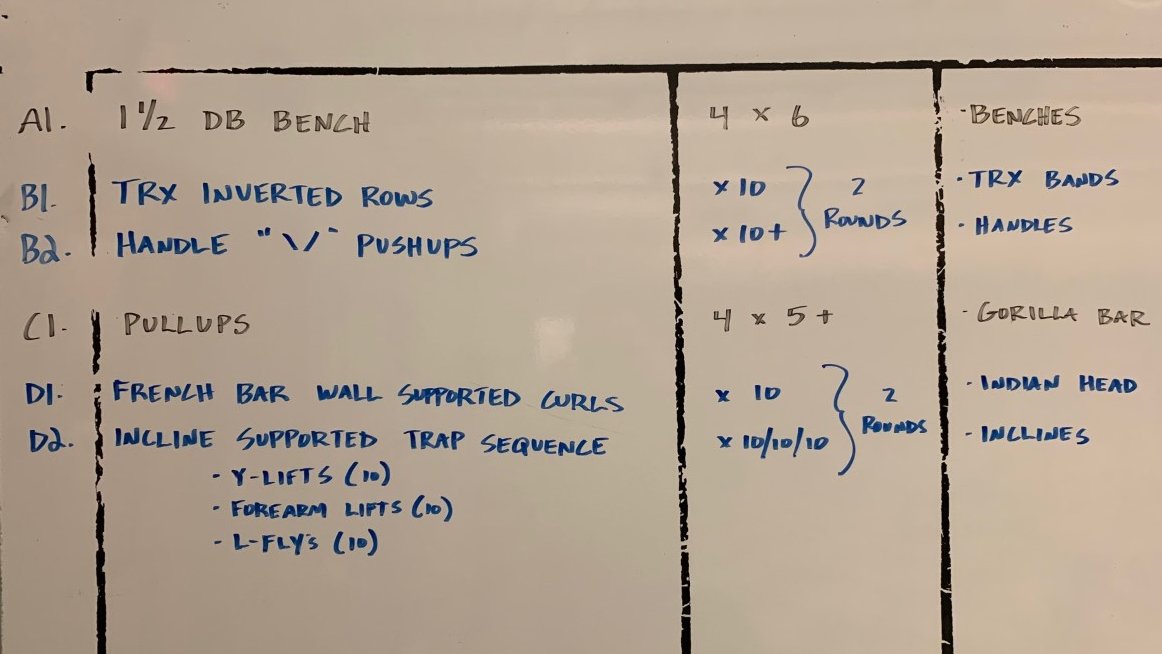 A1. 1 1/2 DB BENCH 4 x 6 · BENCHES
B1. TRX INVERTED ROWS x 10 } 2 ROUNDS · TRX BANDS
B2. HANDLE "\/" PUSHUPS x 10+ · HANDLES
C1. PULLUPS 4 x 5+ · GORILLA BAR
D1. FRENCH BAR WALL SUPPORTED CURLS x 10 } 2 ROUNDS · INDIAN HEAD
D2. INCLINE SUPPORTED TRAP SEQUENCE x 10/10/10 · INCLINES
· Y-LIFTS (10)
· FOREARM LIFTS (10)
- L-FLY'S (10)